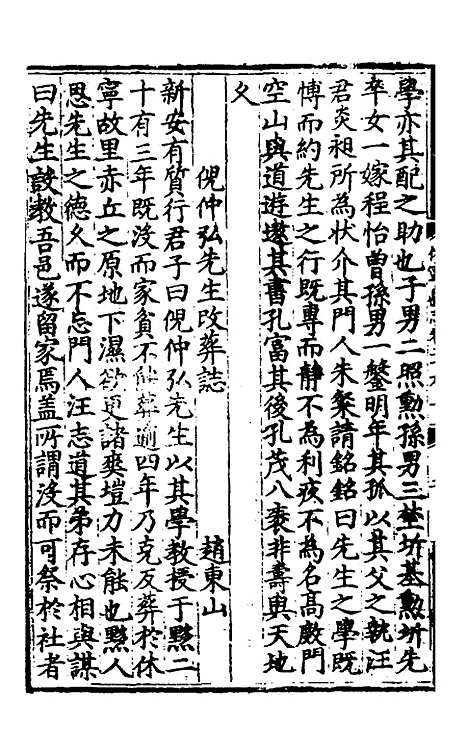 學亦其配之助也子男二照勲孫男三埜圻基勲圻先
卒女一嫁程怡曽孫男一鏧明年其孤以其父之執汪
君炎昶所為狀介其門人朱粲請銘銘曰先生之學既
博而約先生之行既專而静不為利疚不為名髙嚴門
空山與道遊遨其書孔富其後孔茂八袠非壽與天地
久
倪仲弘先生改葬誌 趙東山
新安有質行君子曰倪仲弘先生以其學教授于黟二
十有三年既没而家貧不能葬逾四年乃克反葬於休
寧故里赤丘之原地下濕欲更諸爽塏力未能也黟人
思先生之德久而不忘門人汪志道其弟存心相與謀
曰先生設教吾邑遂留家焉盖所謂没而可祭於社者